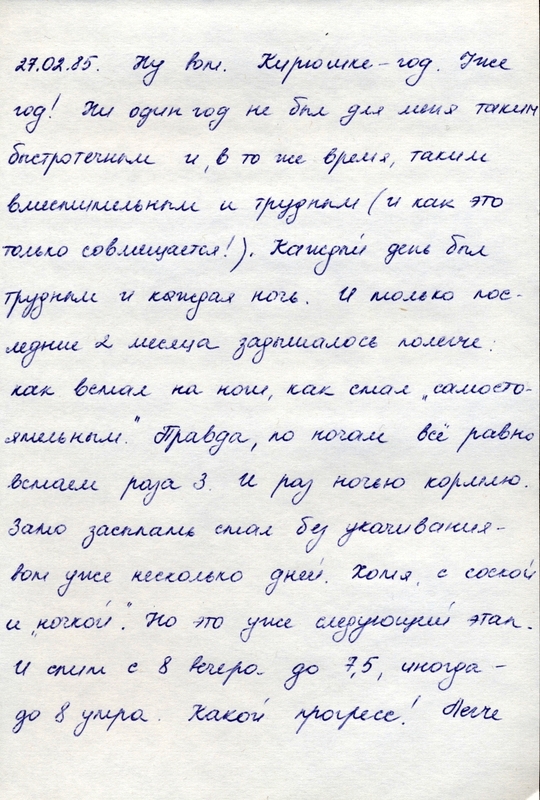 27.02.85. Ну вот. Кирюшке – год. Уже
год! Ни один год не был для меня таким
быстротечным и, в то же время, таким
вместительным и трудным (и как это
только совмещается!). Каждый день был
трудным и каждая ночь. И только пос-
ледние 2 месяца задышалось полегче:
как встал на ноги, как стал „самосто-
ятельным." Правда, по ночам всё равно
встаем раза 3. И раз ночью кормлю.
Зато засыпать стал без укачивания –
вот уже несколько дней. Хотя, с соской
и „ночкой". Но это уже следующий этап.
И спит с 8 вечера до 7,5, иногда –
до 8 утра. Какой прогресс! Легче